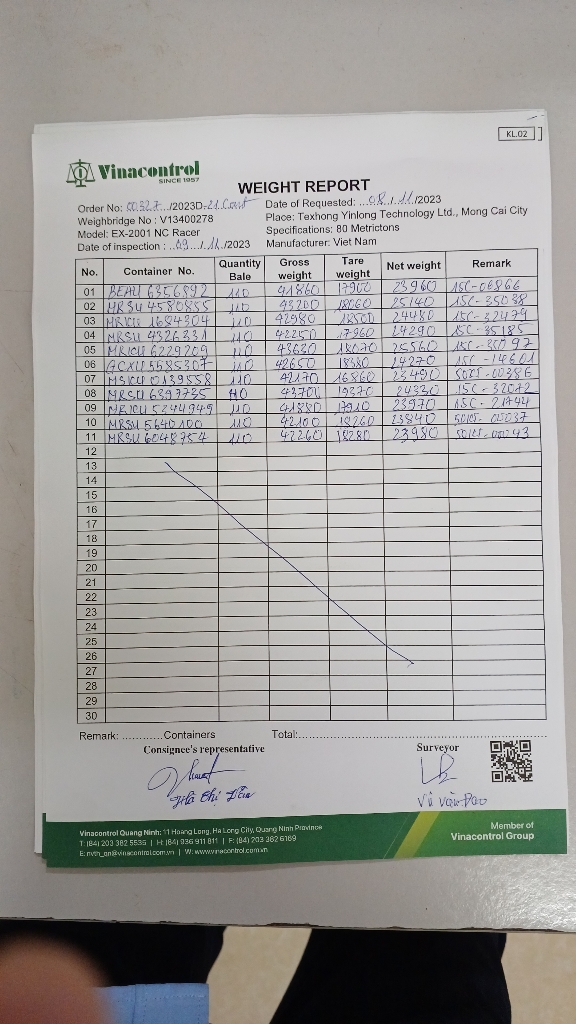 KL.02
Vinacontrol
SINCE 1957
WEIGHT REPORT
Order No: 00327 /2023D-21 Cont
Date of Requested: 08 / 11 /2023
Weighbridge No : V13400278
Place: Texhong Yinlong Technology Ltd., Mong Cai City
Model: EX-2001 NC Racer
Specifications: 80 Metrictons
Date of inspection : 09 / 11 /2023
Manufacturer: Viet Nam
No. Container No. Quantity Bale Gross weight Tare weight Net weight Remark
01 BEAU 6356892 110 41860 17900 23960 15C-06866
02 MRSU 4580855 110 43200 18060 25140 15C-35038
03 MRKU 1684304 110 42980 18500 24480 15C-32479
04 MRSU 4326331 110 42250 17960 24290 15C-35185
05 MRKU 6229209 110 43630 18070 25560 15C-30797
06 GCXU 5585307 110 42650 18380 24270 15C-14601
07 MSKU 0139558 110 42170 16860 23490 50LD-00386
08 MRSU 6397735 110 43700 19370 24330 15C-32072
09 MRKU 5244949 110 41880 17910 23970 15C-21744
10 MRSU 5640100 110 42100 18260 23840 50LD-00037
11 MRSU 6048754 110 42260 18280 23980 50LD-00243
12
13
14
15
16
17
18
19
20
21
22
23
24
25
26
27
28
29
30
Remark: ............Containers Total:
Consignee's representative Surveyor
Vũ Văn Đạo
Vinacontrol Quang Ninh: 11 Hoang Long, Ha Long City, Quang Ninh Province
T: (84) 203 382 5535 | H: (84) 936 911 811 | F: (84) 203 382 6169
E: nvth_qn@vinacontrol.com.vn | W: www.vinacontrol.com.vn
Member of
Vinacontrol Group